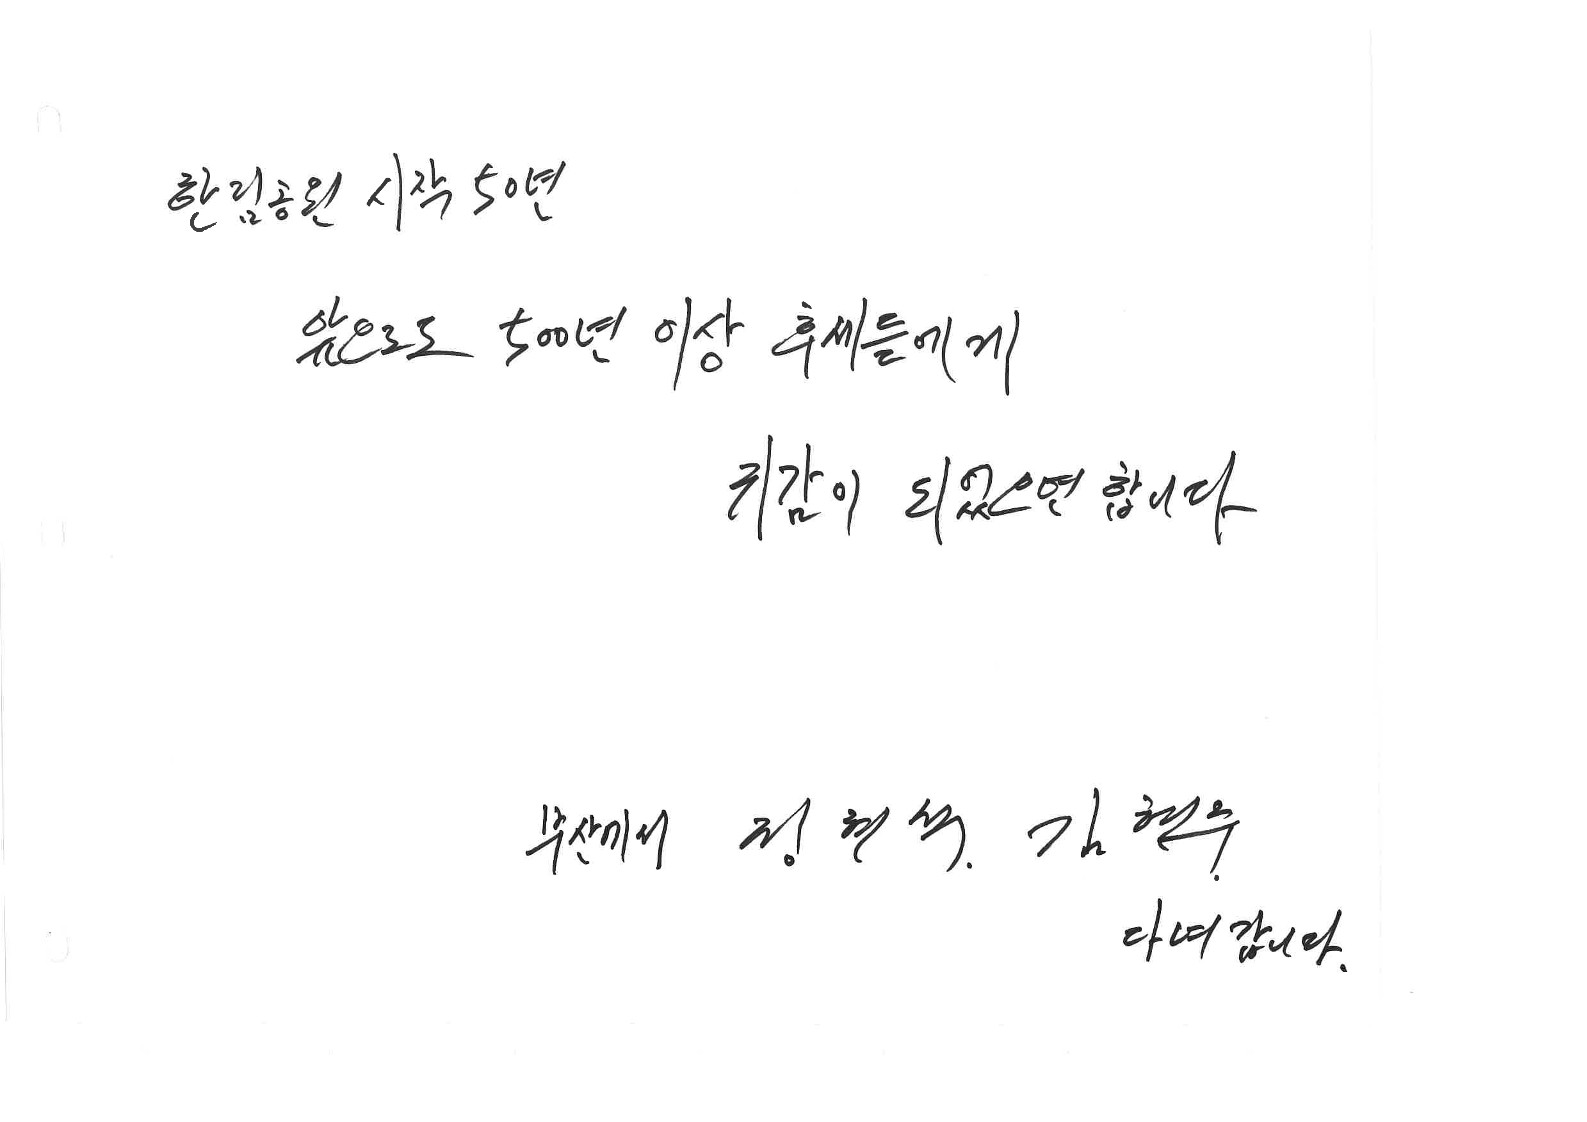 한림공원 시작 50년
앞으로도 500년 이상 후세들에게
귀감이 되었으면 합니다
부산에서 정현석. 김현우.
다녀갑니다.